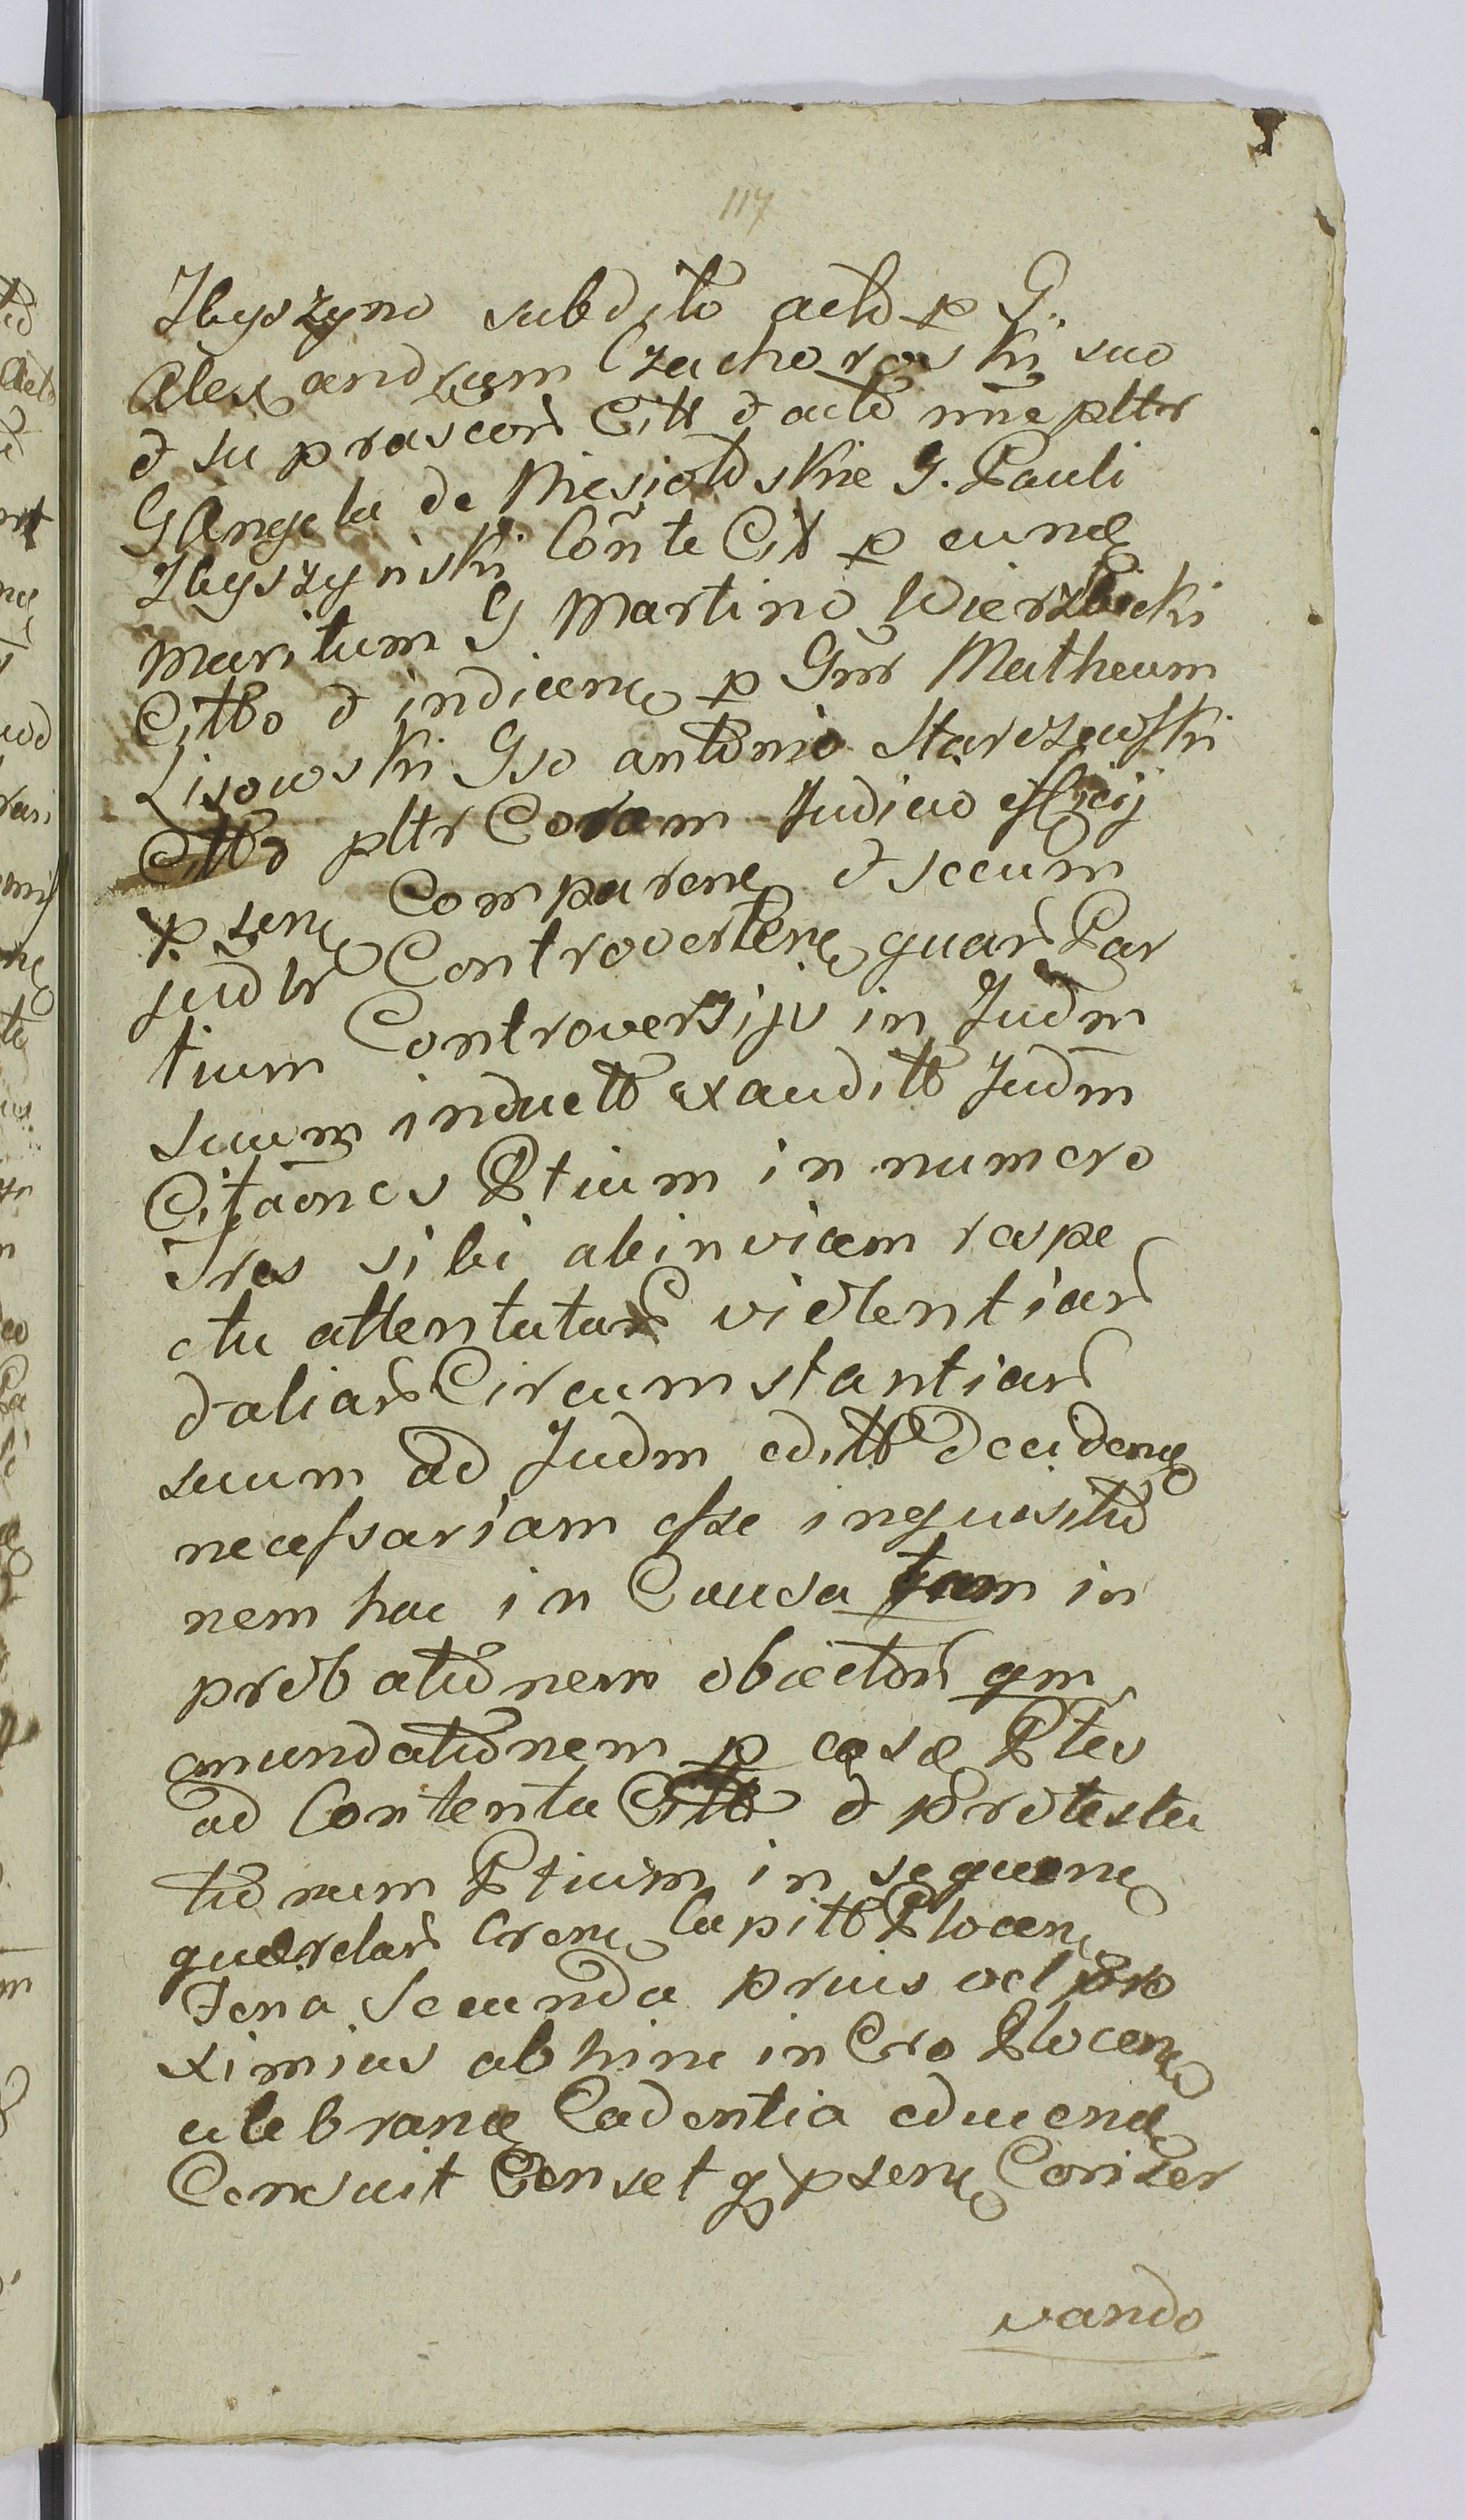 117
Zbyszyno subdito acto p G.
Alexandrum Czachorowski suo
et suprascor Citt et acto nne plttr
G Angela de Niesiołdskie G. Pauli
Zbyszynski Conte Cit p eunđ
Maritum G Martino Wierzbicki
Citto et indicene p Gnr Matheum
Lisowski Gso antonio Starczewski
Citto pltr Coram Judicio officij
p sene Comparene et secum
judtr Controvertene quar Par
tium Controversijs in Judm
suum inductt exauditt Judm
Citaones Ptium in numero
Tres sibi abinvicem respe
ctu attentatar violentiar
et aliar Circumstantiar
suum ad Judm editt decidenđ
necessariam esse inquisitio
nem hac in Causa tam in
probationem obiector qm
emundationem p easđ Ptes
ad Contenta Citt et protesta
tionum Ptium in sequene
querelar Crene Capitt Plocene
Fena Secunda prius vel pro
ximius abhinc in Cro Plocene
celebranđ Cadentia educenđ
Censuit Censetq psene Conser
vando